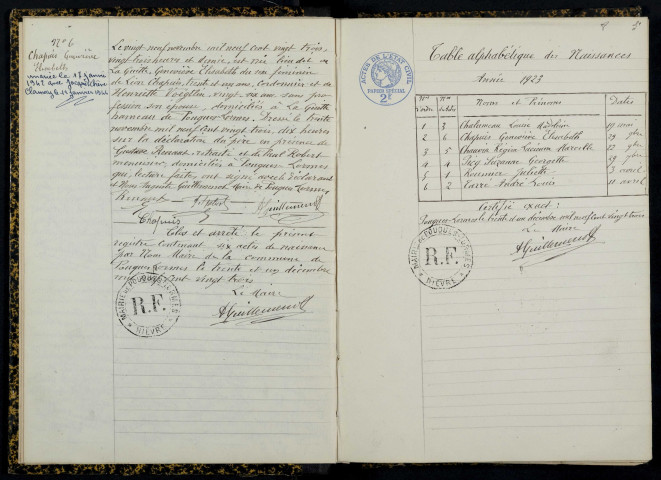 N° 6
Chapuis Geneviève
Elisabeth
mariée le 17 janvier
1942 avec
Clamecy le 18 janvier 1942
Le vingt neuf novembre mil neuf cent vingt trois
vingt trois heures et demie, est née lieudit de
La Guitte, Geneviève Elisabeth du sexe féminin
de Léon Chapuis, trente et un ans, cordonnier et de
Henriette Voegtlin, vingt six ans sans pro
fession son épouse, domiciliés à La Guitte
hameau de Pouques-Lormes. Dressé le trente
novembre mil neuf cent vingt trois, dix heures
sur la déclaration du père en présence de
Gustave Renault retraité et de Paul Robert
menuisier, domiciliés à Pouques-Lormes
qui, lecture faite, ont signé avec le déclarant
et Nous Auguste Guillemenot Maire de Pouques Lormes
Chapuis
Guillemenot
Clos et arrêté le présent
registre contenant six actes de naissance
par Nous Maire de la commune de
Pouques-Lormes le trente et un décembre
mil neuf cent vingt trois
Le Maire
AGuillemenot
MAIRIE DE POUQUES-LORMES
R.F.
NIÈVRE
ACTES DE L'ÉTAT CIVIL
PAPIER SPÉCIAL
2F
5
Table alphabétique des Naissances
Année 1923
Nos d'ordre Nos des actes Noms et Prénoms Dates
1 3 Chalumeau Louise 19 mai
2 6 Chapuis Geneviève Elisabeth 29 9bre
3 5 Chauvin Régina Lucienne Marcelle 12 9bre
4 4 Suzanne Georgette 29 7bre
5 1 Juliette 3 avril
6 2 André Louis 11 avril
Certifié exact :
Pouques-Lormes le trente et un décembre mil neuf cent vingt trois
Le Maire
AGuillemenot
MAIRIE DE POUQUES-LORMES
R.F.
NIÈVRE